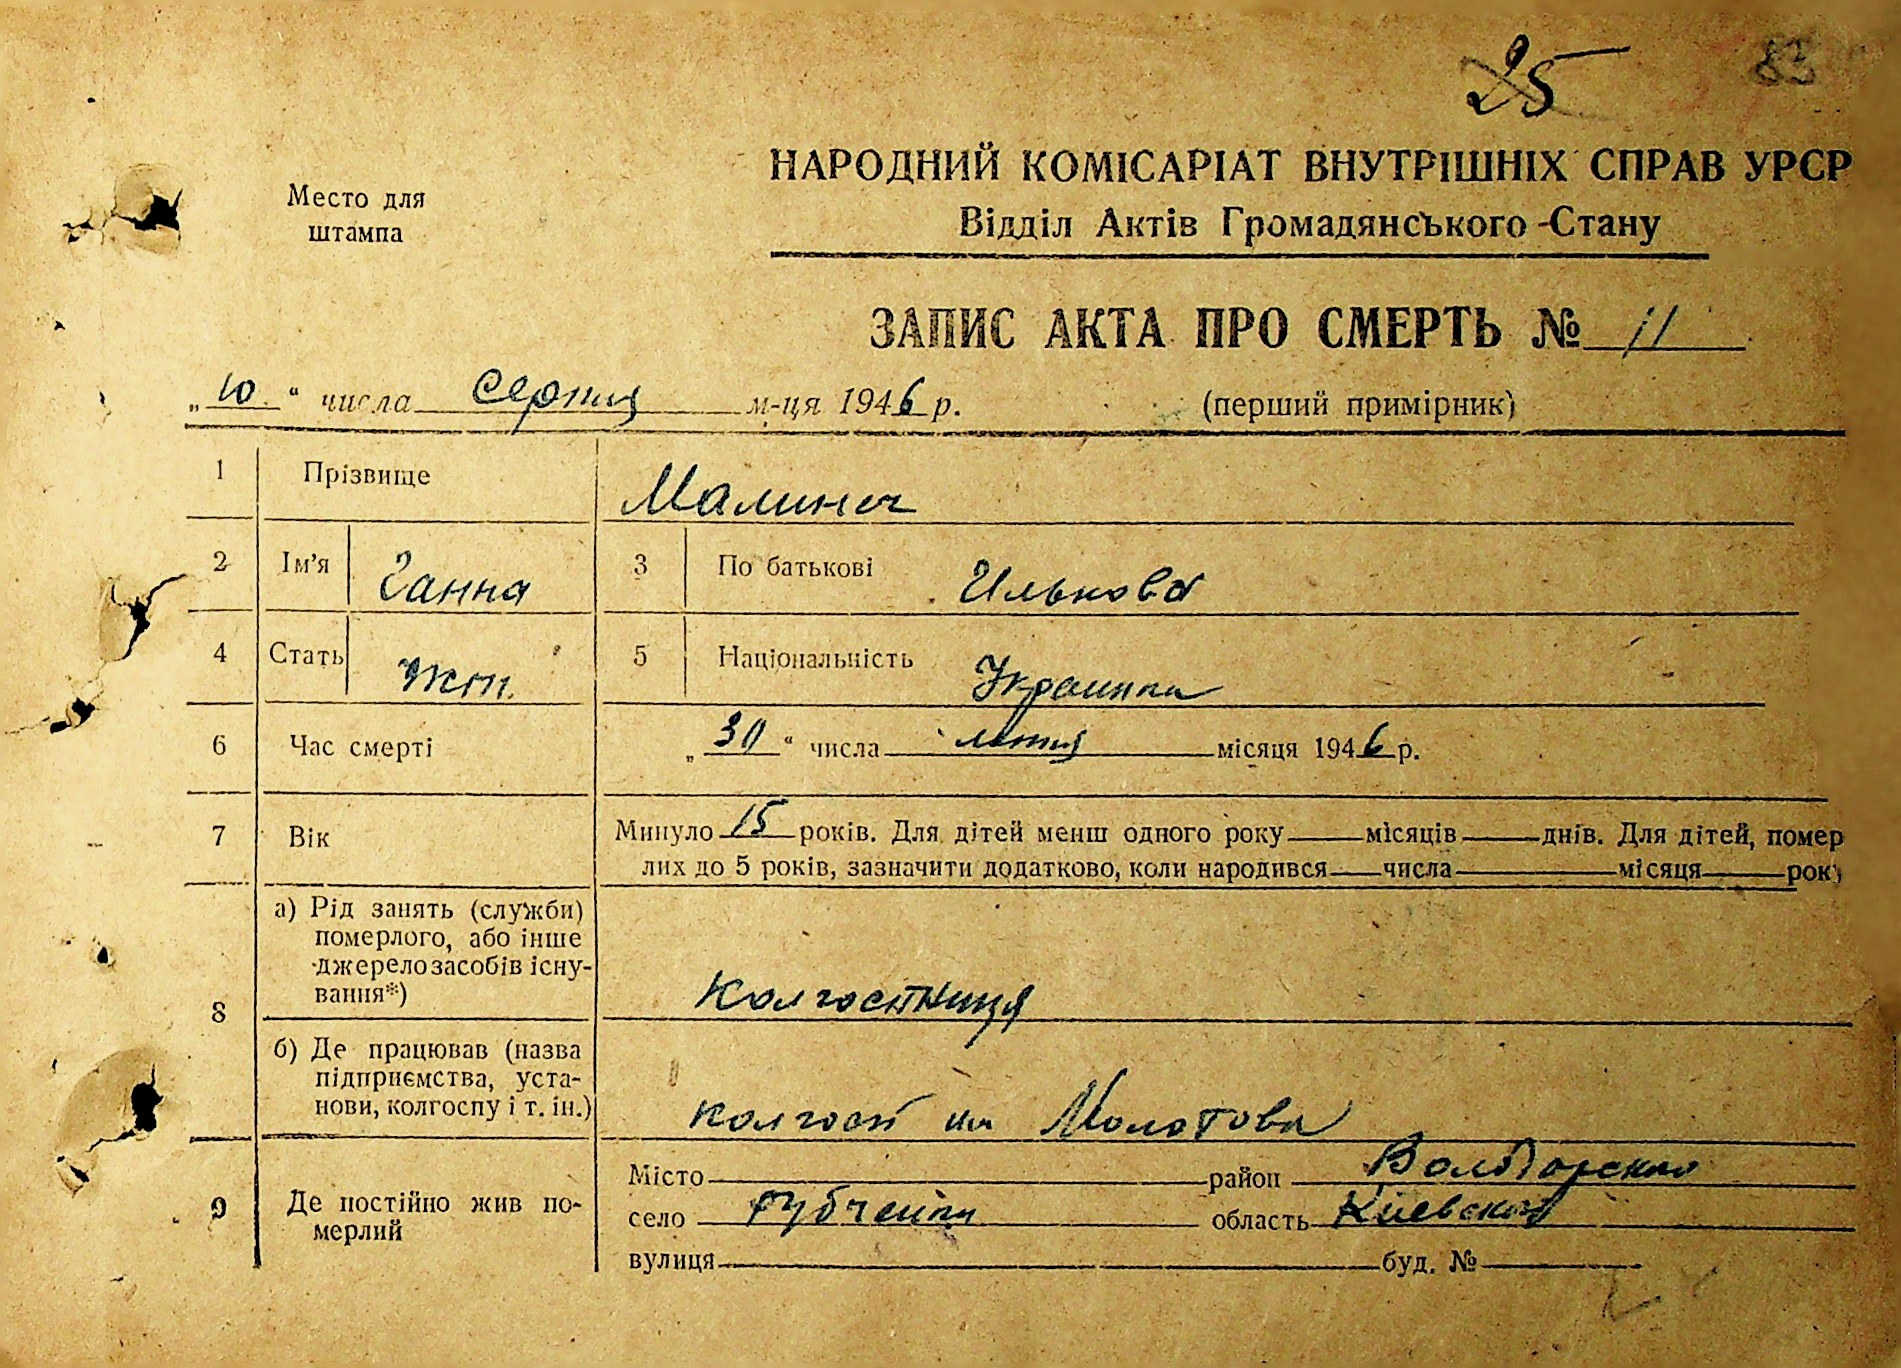 25 83
НАРОДНИЙ КОМІСАРІАТ ВНУТРІШНІХ СПРАВ УРСР
Место для
штампа
Відділ Актів Громадянського Стану
ЗАПИС АКТА ПРО СМЕРТЬ № 11
„10“ числа серпня м-ця 1946 р. (перший примірник)
1 Прізвище Малина
2 Ім'я Ганна 3 По батькові Илькова
4 Стать жен. 5 Національність Украинка
6 Час смерті „30“ числа липня місяця 1946 р.
7 Вік Минуло 15 років. Для дітей менш одного року місяців днів. Для дітей, помер
лих до 5 років, зазначити додатково, коли народився числа місяця року
8 а) Рід занять (служби)
померлого, або інше
джерело засобів існу-
вання*) Колгоспниця
б) Де працював (назва
підприємства, уста-
нови, колгоспу і т. ін.) колгосп им Молотова
9 Де постійно жив по-
мерлий
Місто район Володарского
село Рубченки область Киевской
вулиця буд. №